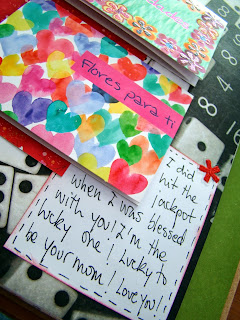 Flores para ti
I did
hit the
jackpot
when I was blessed
with you! I'm the
lucky one! Lucky to
be your mum! Love you!